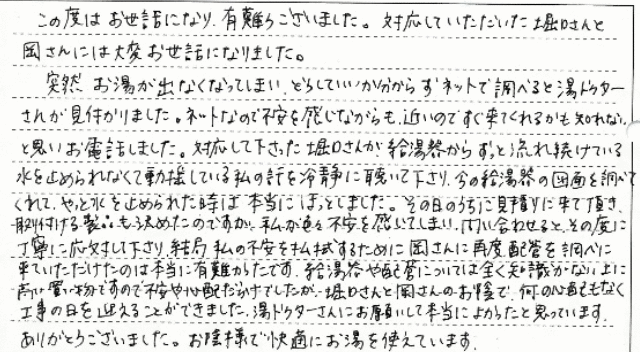 この度はお世話になり、有難うございました。対応していただいた堀口さんと
岡さんには大変お世話になりました。
突然お湯が出なくなってしまい、どうしていいか分からずネットで調べると湯ドクター
さんが見付かりました。ネットなので不安を感じながらも、近いのですぐ来てくれるかも知れない
と思いお電話しました。対応して下さった堀口さんが給湯器からずっと流れ続けている
水を止められなくて動揺している私の話を冷静に聴いて下さり、今の給湯器の図面を調べて
くれて、やっと水を止められた時は本当にほっとしました。その日のうちに見積りに来て頂き、
取り付ける製品も決めたのですが、私が色々不安を感じてしまい、問い合わせると、その度に
丁寧に応対して下さり、結局私の不安を払拭するために岡さんに再度配管を調べに
来ていただけたのは本当に有難かったです。給湯器や配管については全く知識がない上に
高い買い物ですので不安や心配だらけでしたが、堀口さんと岡さんのお陰で、何の心配もなく
工事の日を迎えることができました。湯ドクターさんにお願いして本当によかったと思っています。
ありがとうございました。お陰様で快適にお湯を使えています。